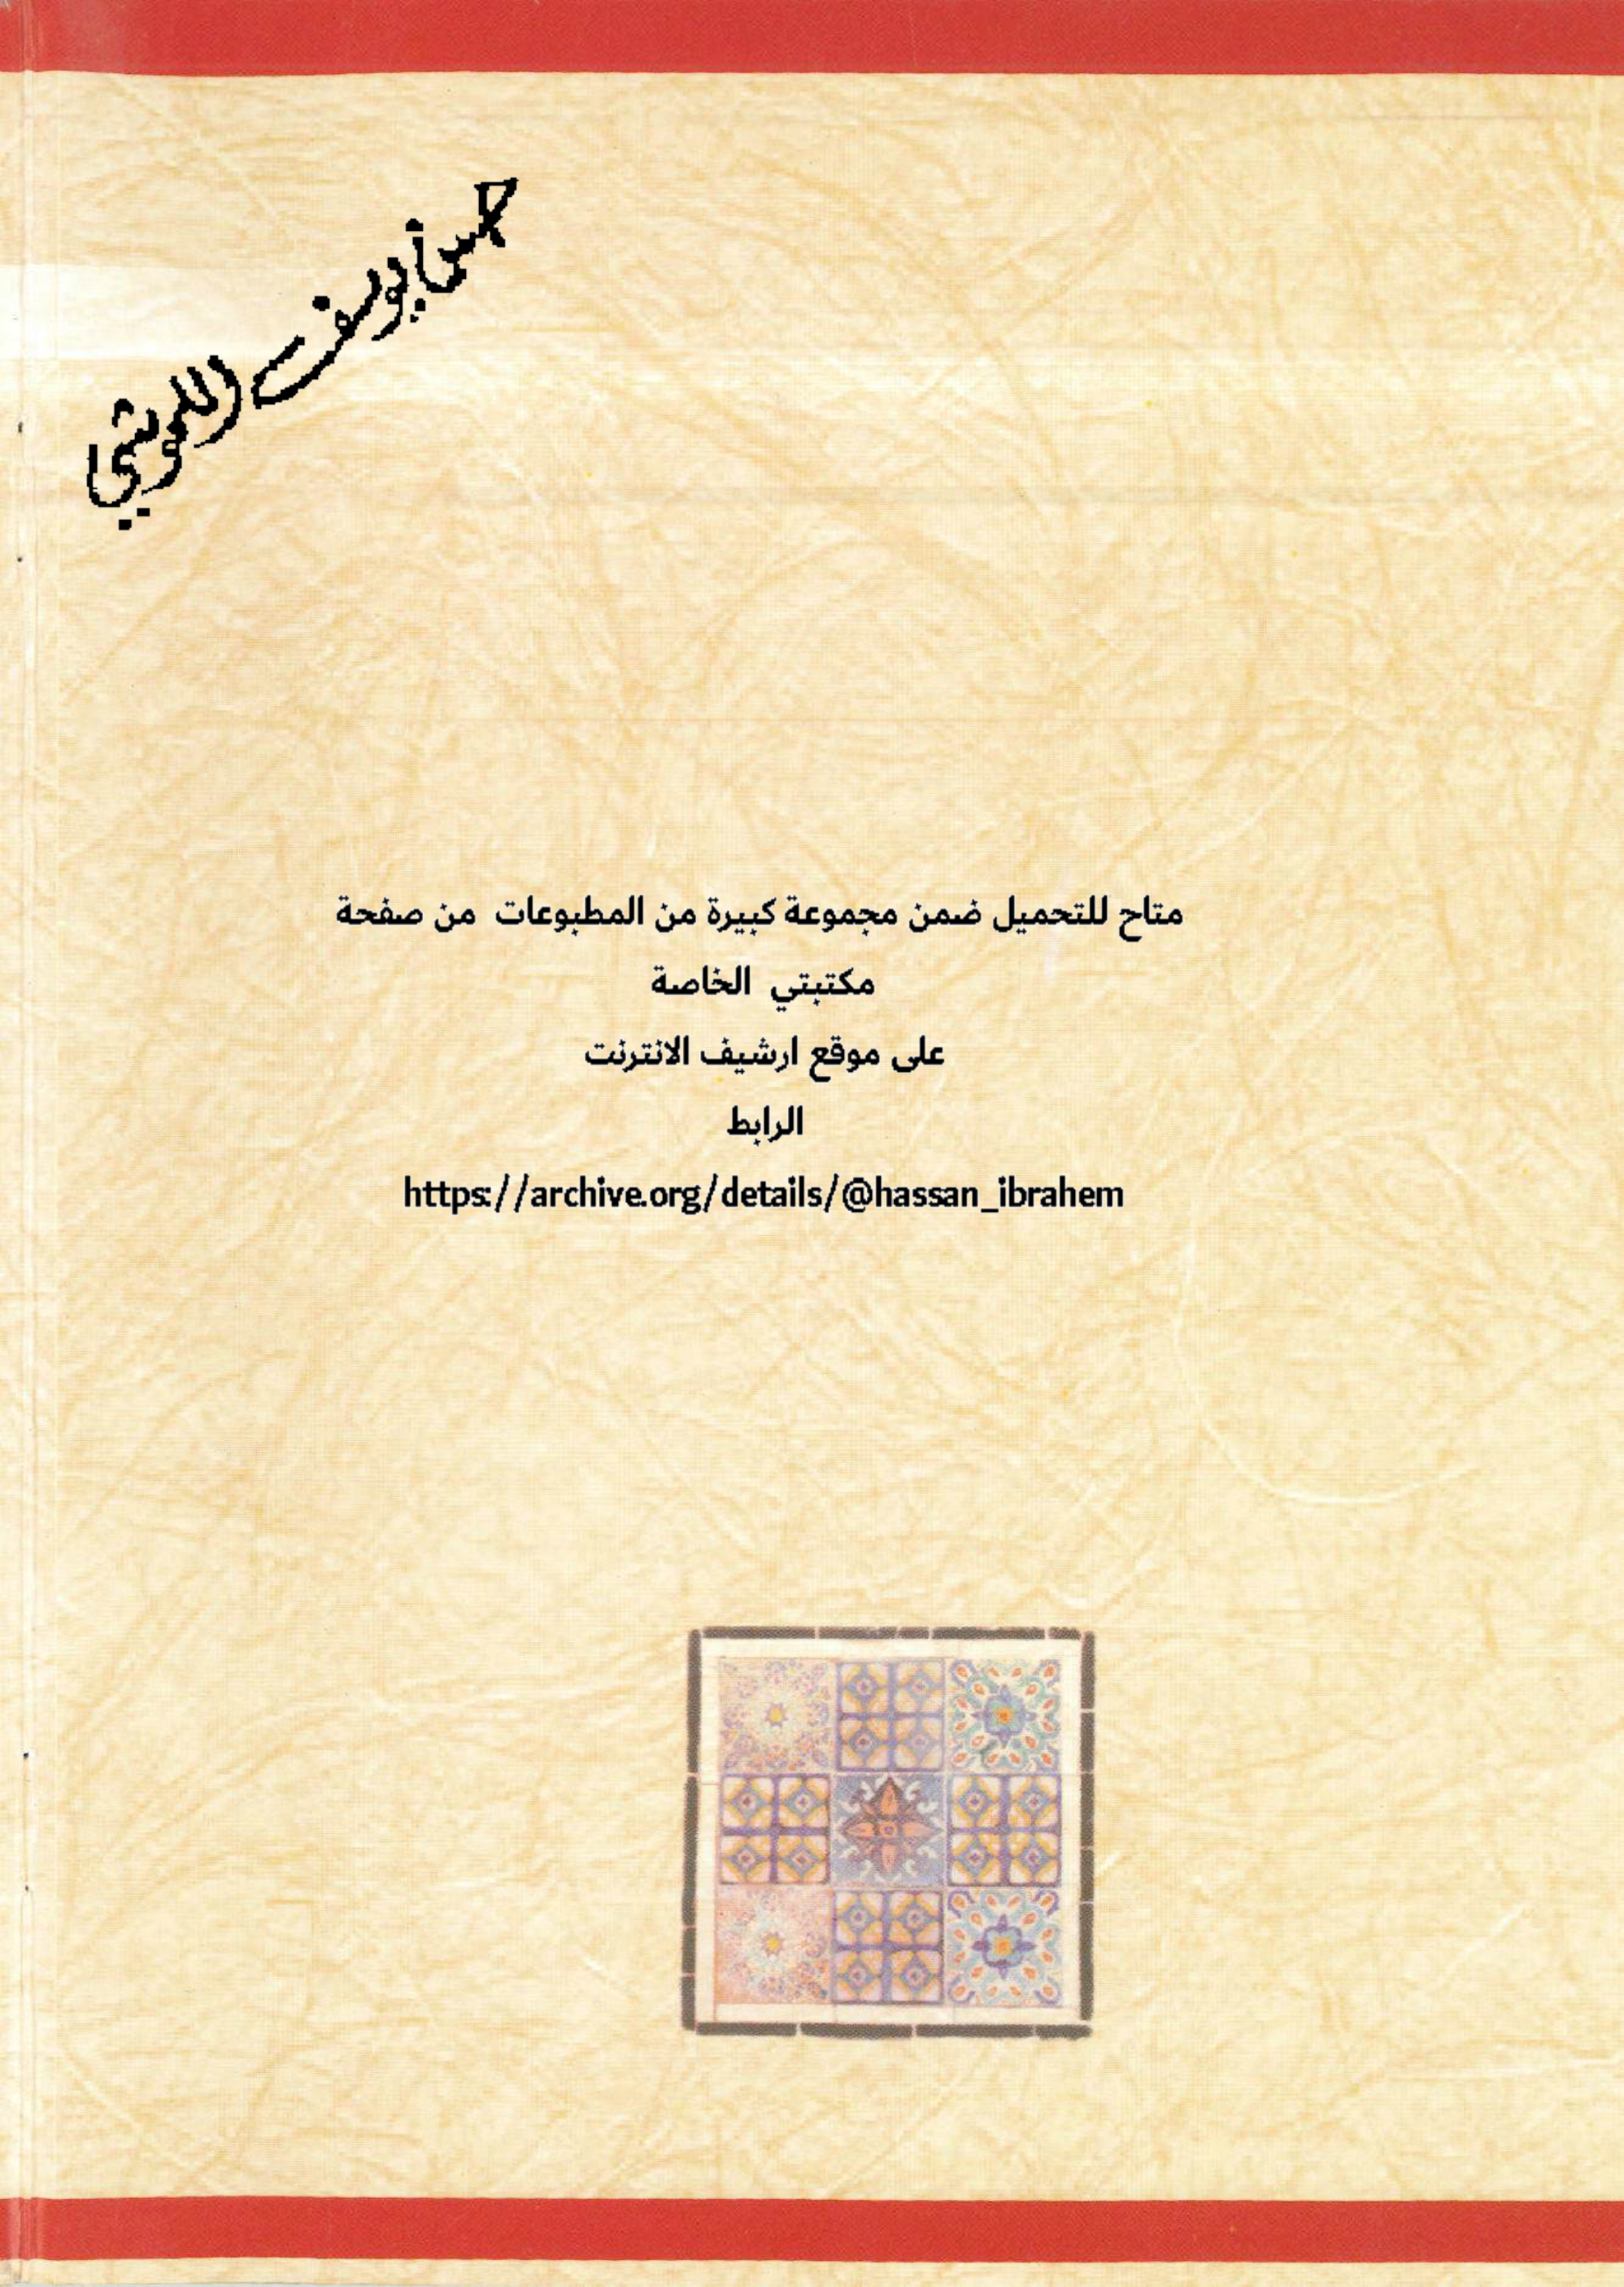 حسن يوسف
متاح للتحميل ضمن مجموعة كبيرة من المطبوعات من صفحة
مكتبتي الخاصة
على موقع ارشيف الانترنت
الرابط
https://archive.org/details/@hassan_ibrahem